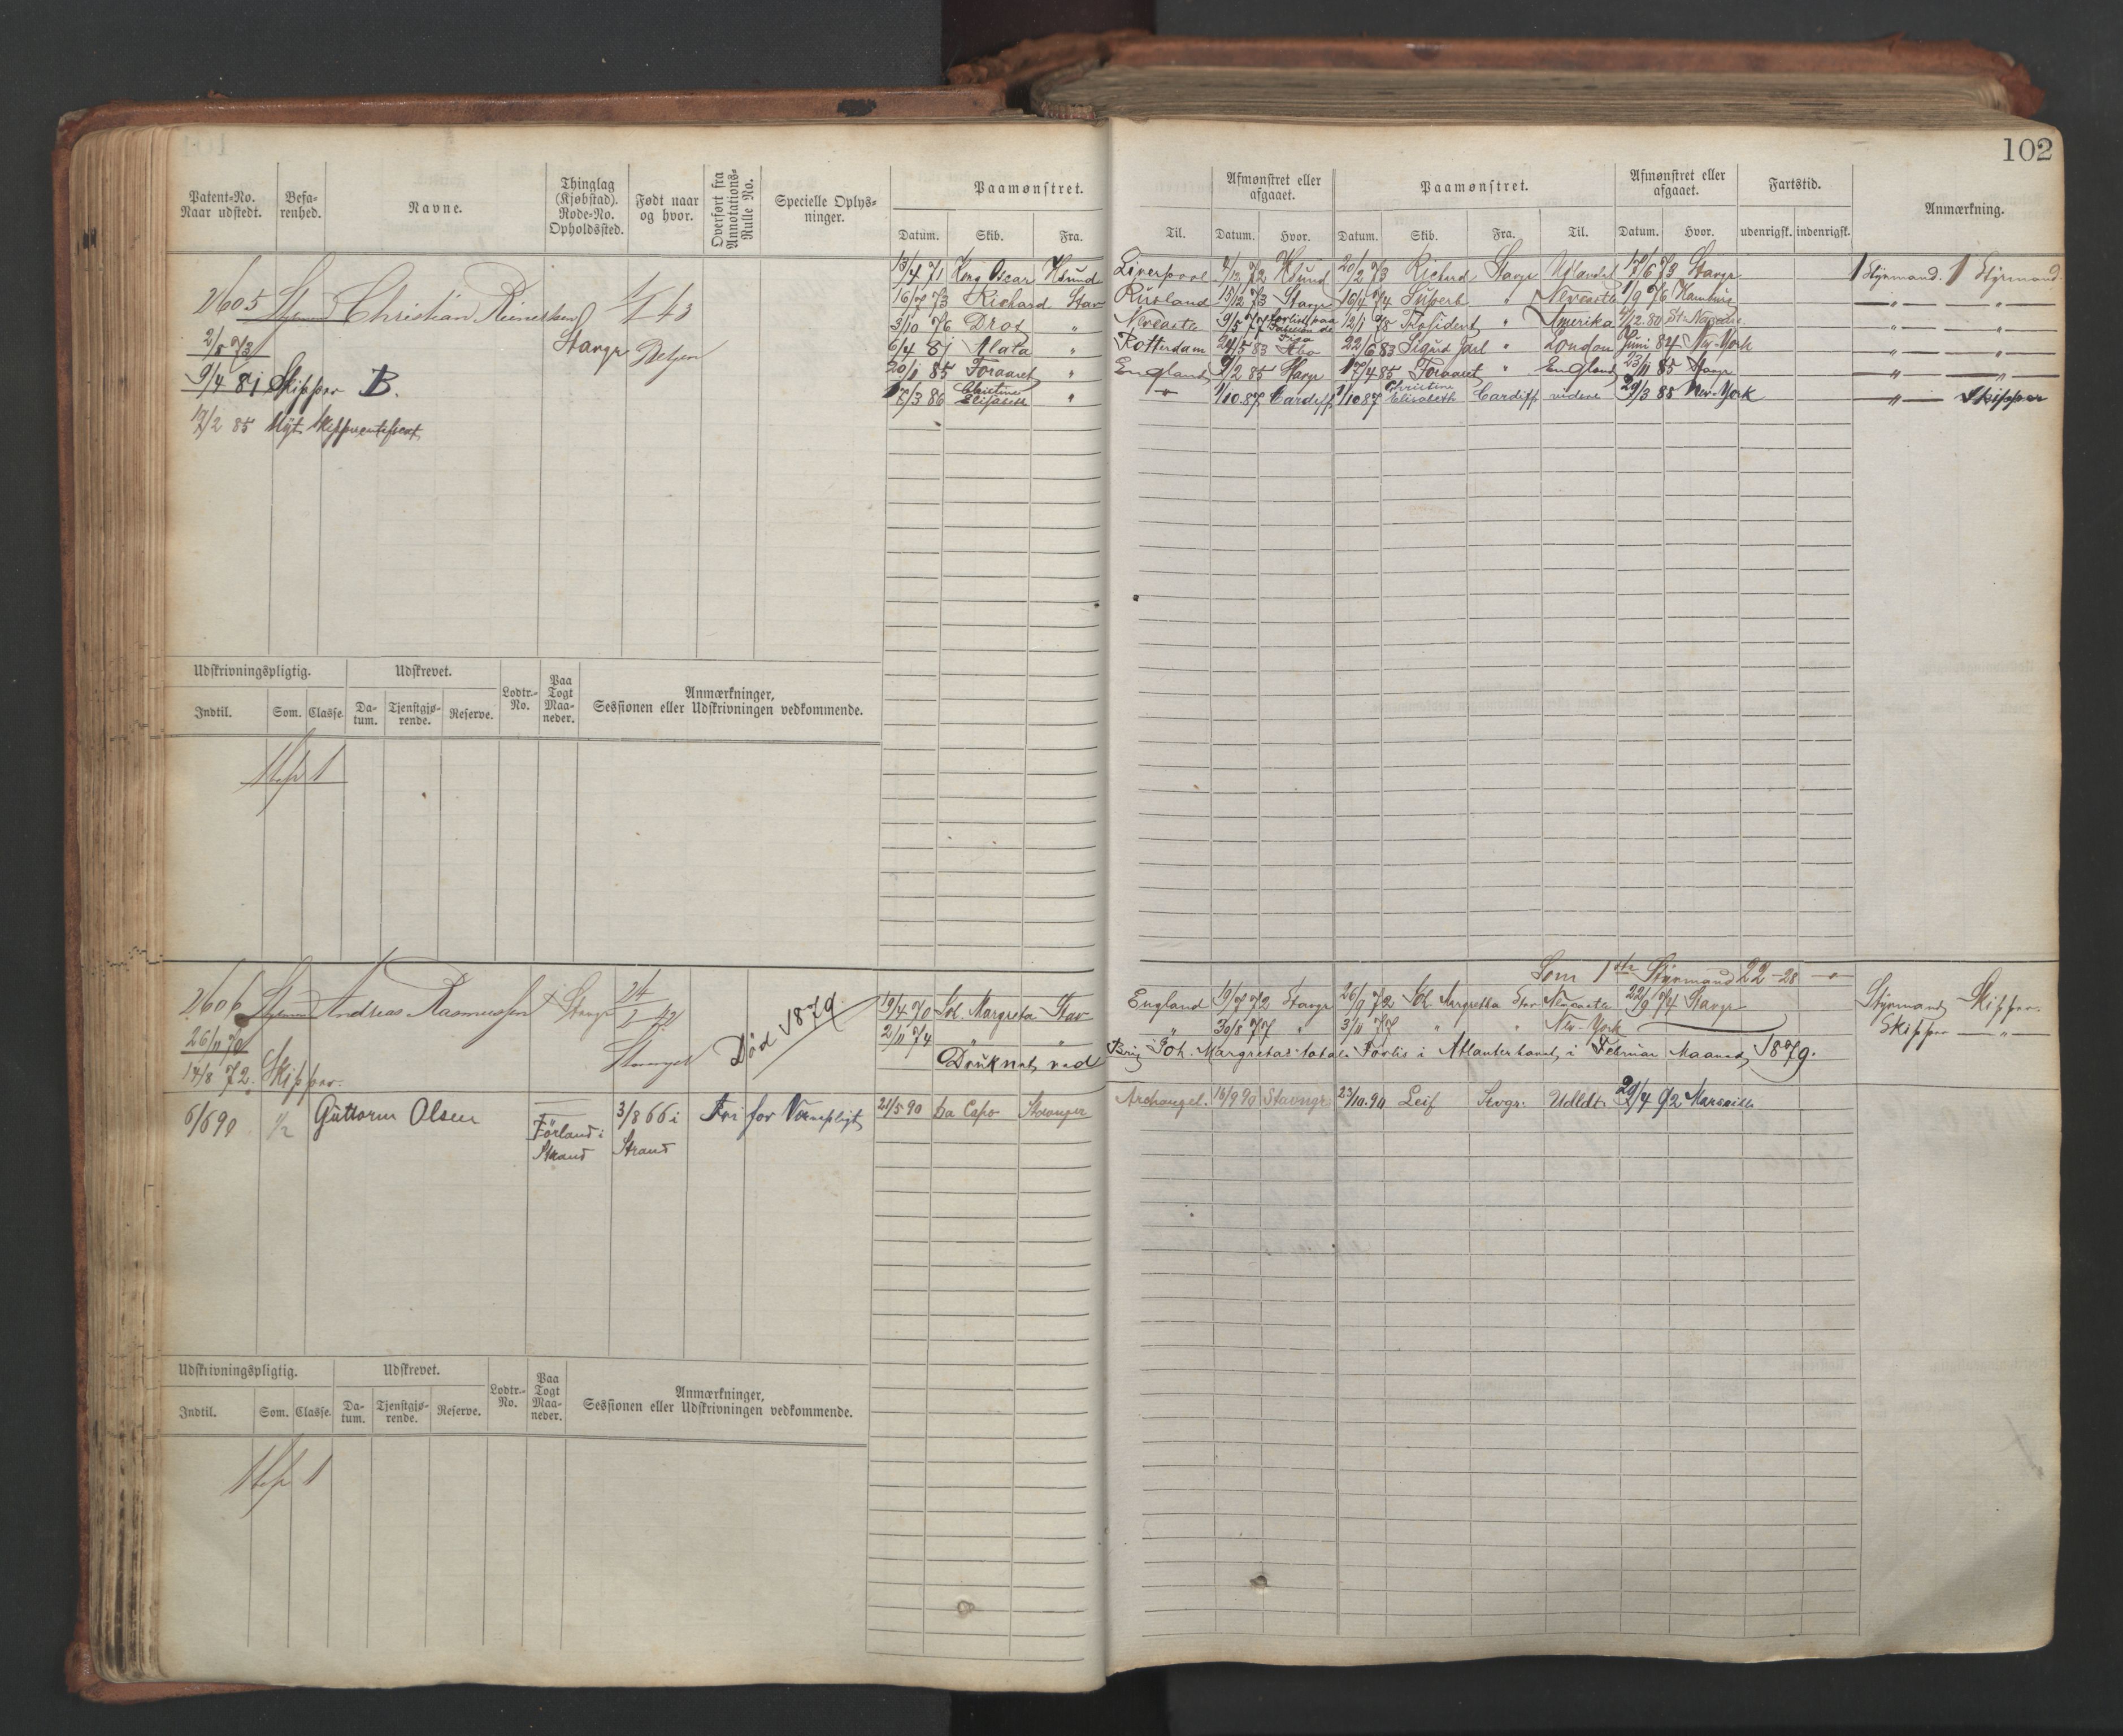 102
Patent-No. Naar udstedt.
Befa-renhed.
Navne.
Thinglag (Kjøbstad). Rode-No. Opholdssted.
Født naar og hvor.
Overført fra Annotations-Rulle No.
Specielle Oplys-ninger.
Paamønstret.
Afmønstret eller afgaaet.
Paamønstret.
Afmønstret eller afgaaet.
Fartstid.
Anmærkning.
Datum. Skib. Fra. Til. Datum. Hvor. Datum. Skib. Fra. Til. Datum. Hvor. udenrigsk. indenrigsk.
2605 Christian Reinertsen Stavgr
2/5 73
9/4 81 Skipper B.
17/2 85 Nyt
13/4 71 Kong Oscar Hsund Liverpool 4/12 72 Hsund 20/2 73 Richard Stavgr Udlandet 17/6 73 Stavgr 1 Styrmand. 1 Styrmand.
16/7 73 Richard Stav Rusland 13/12 73 Stavgr 16/4 74 Superb " Newcastle 1/9 76 Hamburg " "
3/10 76 Drot " Newcastle 9/5 77 forlist paa 12/1 78 President " Amerika /12 80 St. " "
6/4 81 " Rotterdam 29/5 83 Abo 22/6 83 Sigurd Jarl " London Juni 84 New-York " "
20/11 85 Foraaret " England 9/2 85 Stavgr 17/4 85 Foraaret " England 23/11 85 Stavgr " "
17/3 86 Christine Elisabeth " 1/10 87 Cardiff 1/10 87 Christine Elisabeth Cardiff videre 29/3 85 New-York " Skipper
Udskrivningspligtig.
Udskrevet.
Lodtr.-No.
Paa Togt Maa-neder.
Anmærkninger, Sessionen eller Udskrivningen vedkommende.
Indtil. Som. Classe. Da-tum. Tjenstgjø-rende. Reserve.
1
Som 1ste Styrmand 22-28
2606 Andreas Rasmussen Stavgr 24/ 42 Stavanger
26/11 70
14/8 72. Skipper.
Død 1879
19/4 70 Joh. Margreta Stav England 19/7 72 Stavgr 26/9 72 Joh Margretha Stav Newcastle 22/9 74 Stavgr Styrmand Skipper.
2/11 74 " " " 30/8 77 " 3/11 77 " " New-York Skipper "
Druknet ved Brig Joh. Margretas totale Forlis i Atlanterhavet, i Februar Maaned, 1879.
6/6 90 1/2 Guttorm Olsen Førland i Strand 3/8 66 i Strand Fri for Værnepligt
21/5 90 Da Capo Stavanger Archangel. 16/9 90 Stavngr 23/10.90 Leif Stvgr. Udldt. 29/4 92 Marseille
Udskrivningspligtig.
Udskrevet.
Lodtr.-No.
Paa Togt Maa-neder.
Anmærkninger, Sessionen eller Udskrivningen vedkommende.
Indtil. Som. Classe. Da-tum. Tjenstgjø-rende. Reserve.
1